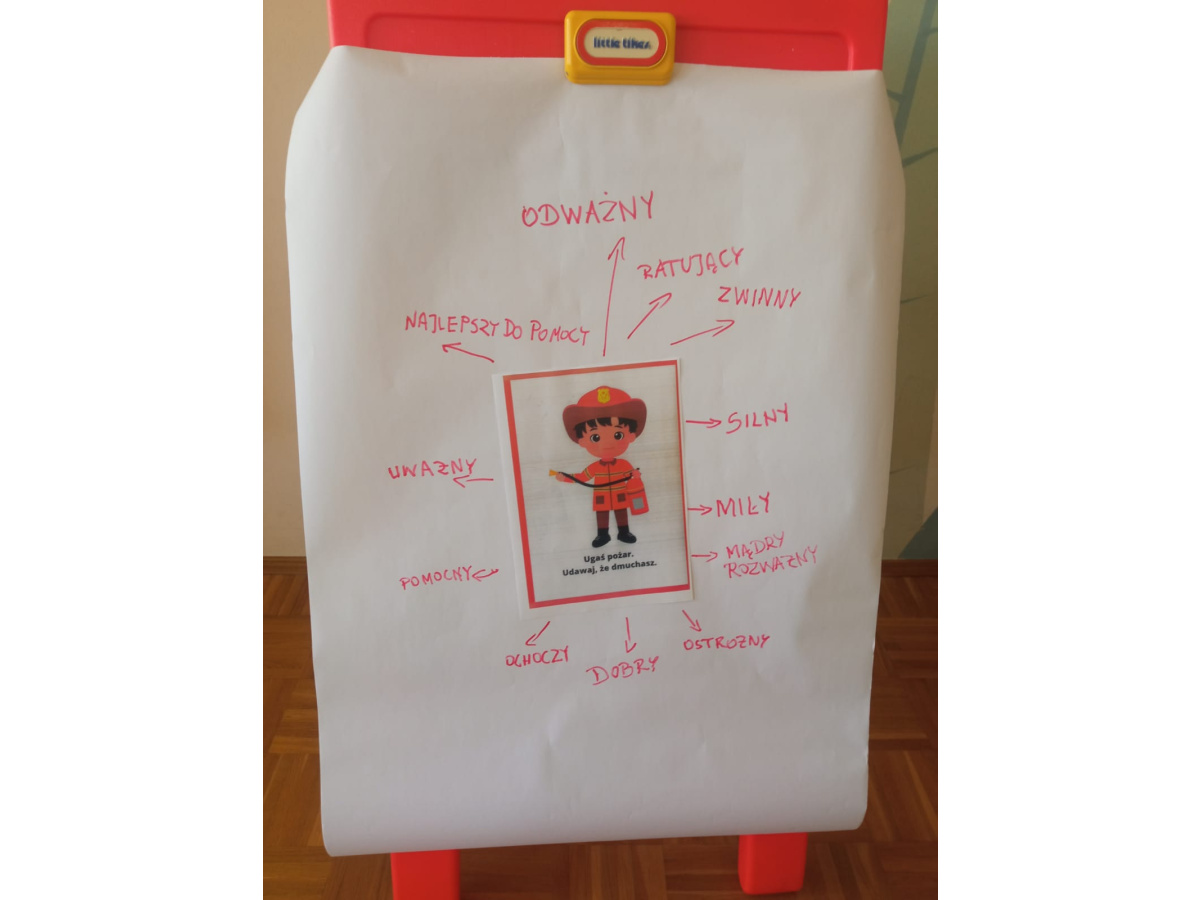 little tikes
ODWAŻNY
RATUJĄCY
ZWINNY
NAJLEPSZY DO POMOCY
SILNY
UWAZNY
MIŁY
MĄDRY
ROZWAZNY
POMOCNY
Ugaś pożar.
Udawaj, że dmuchasz.
OCHOCZY
DOBRY
OSTROZNY